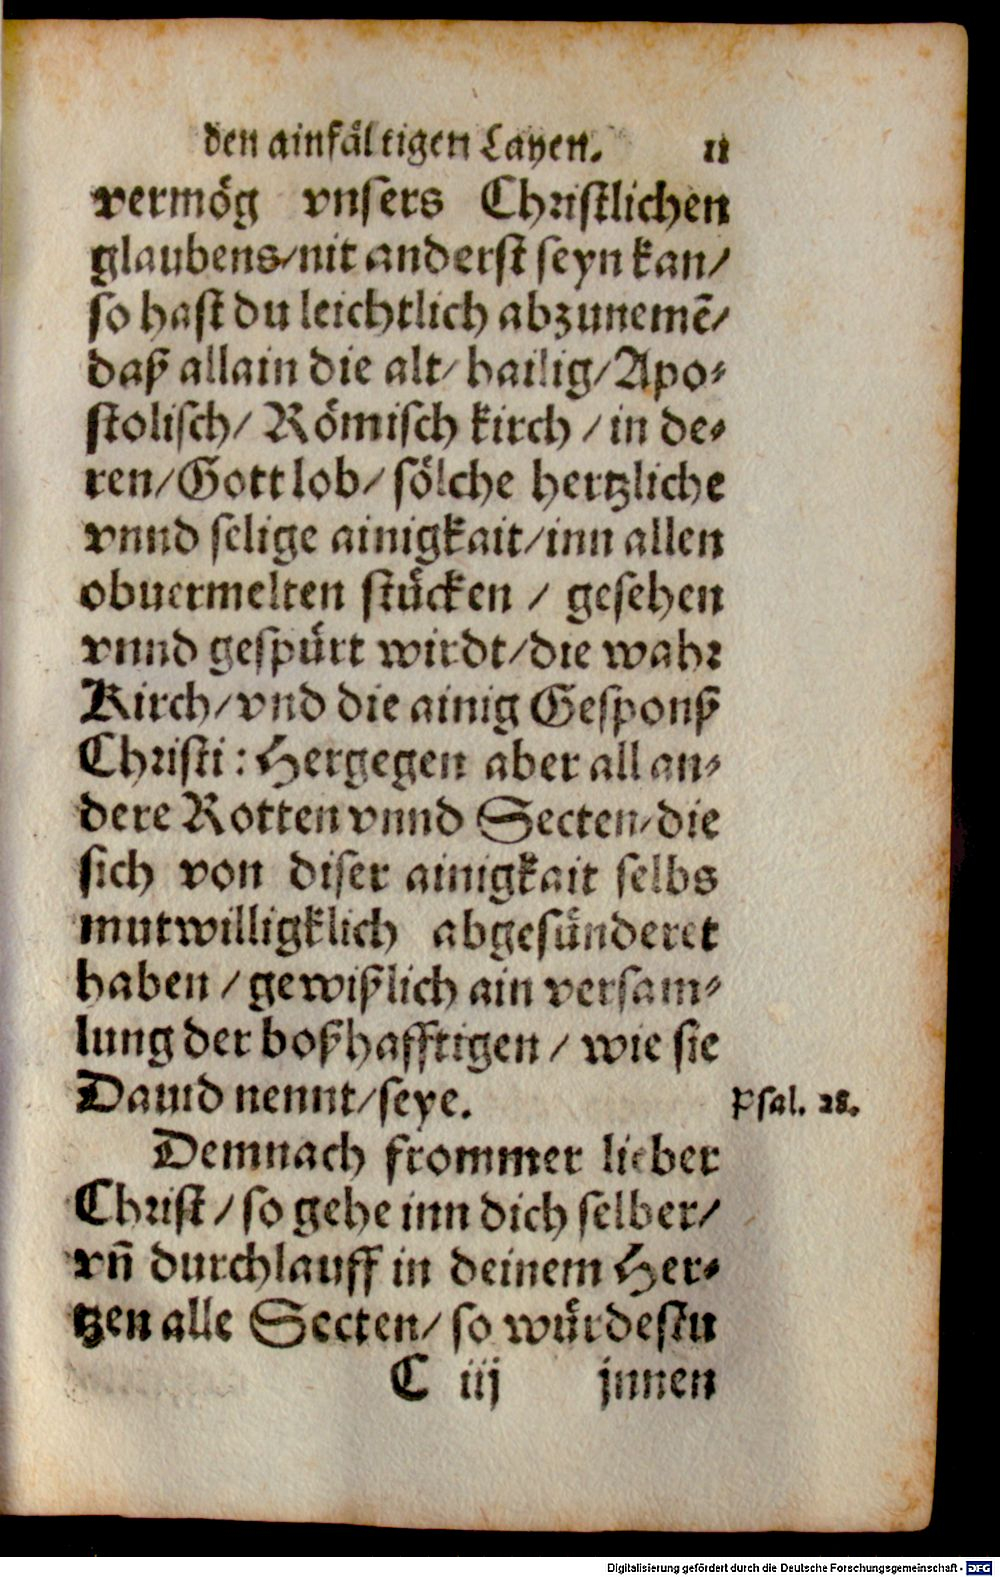 den ainfältigen Layen. 11
vermög vnsers Christlichen
glaubens/nit anderst seyn kan/
so hast du leichtlich abzunemē/
daß allain die alt/ hailig/Apo-
stolisch/ Römisch kirch / in de-
ren/Gott lob/ sölche hertzliche
vnnd selige ainigkait/inn allen
obuermelten stücken / gesehen
vnnd gespürt wirdt/die wahr
Kirch/vnd die ainig Gesponß
Christi: Hergegen aber all an-
dere Rotten vnnd Secten/die
sich von diser ainigkait selbs
mutwilligklich abgesünderet
haben / gewißlich ain versam-
lung der boßhafftigen / wie sie
Dauid nennt/seye.
Psal. 28.
Demnach frommer lieber
Christ / so gehe inn dich selber/
vn̄ durchlauff in deinem Her-
tzen alle Secten/ so würdestu
C iij jnnen
Digitalisierung gefördert durch die Deutsche Forschungsgemeinschaft - DFG